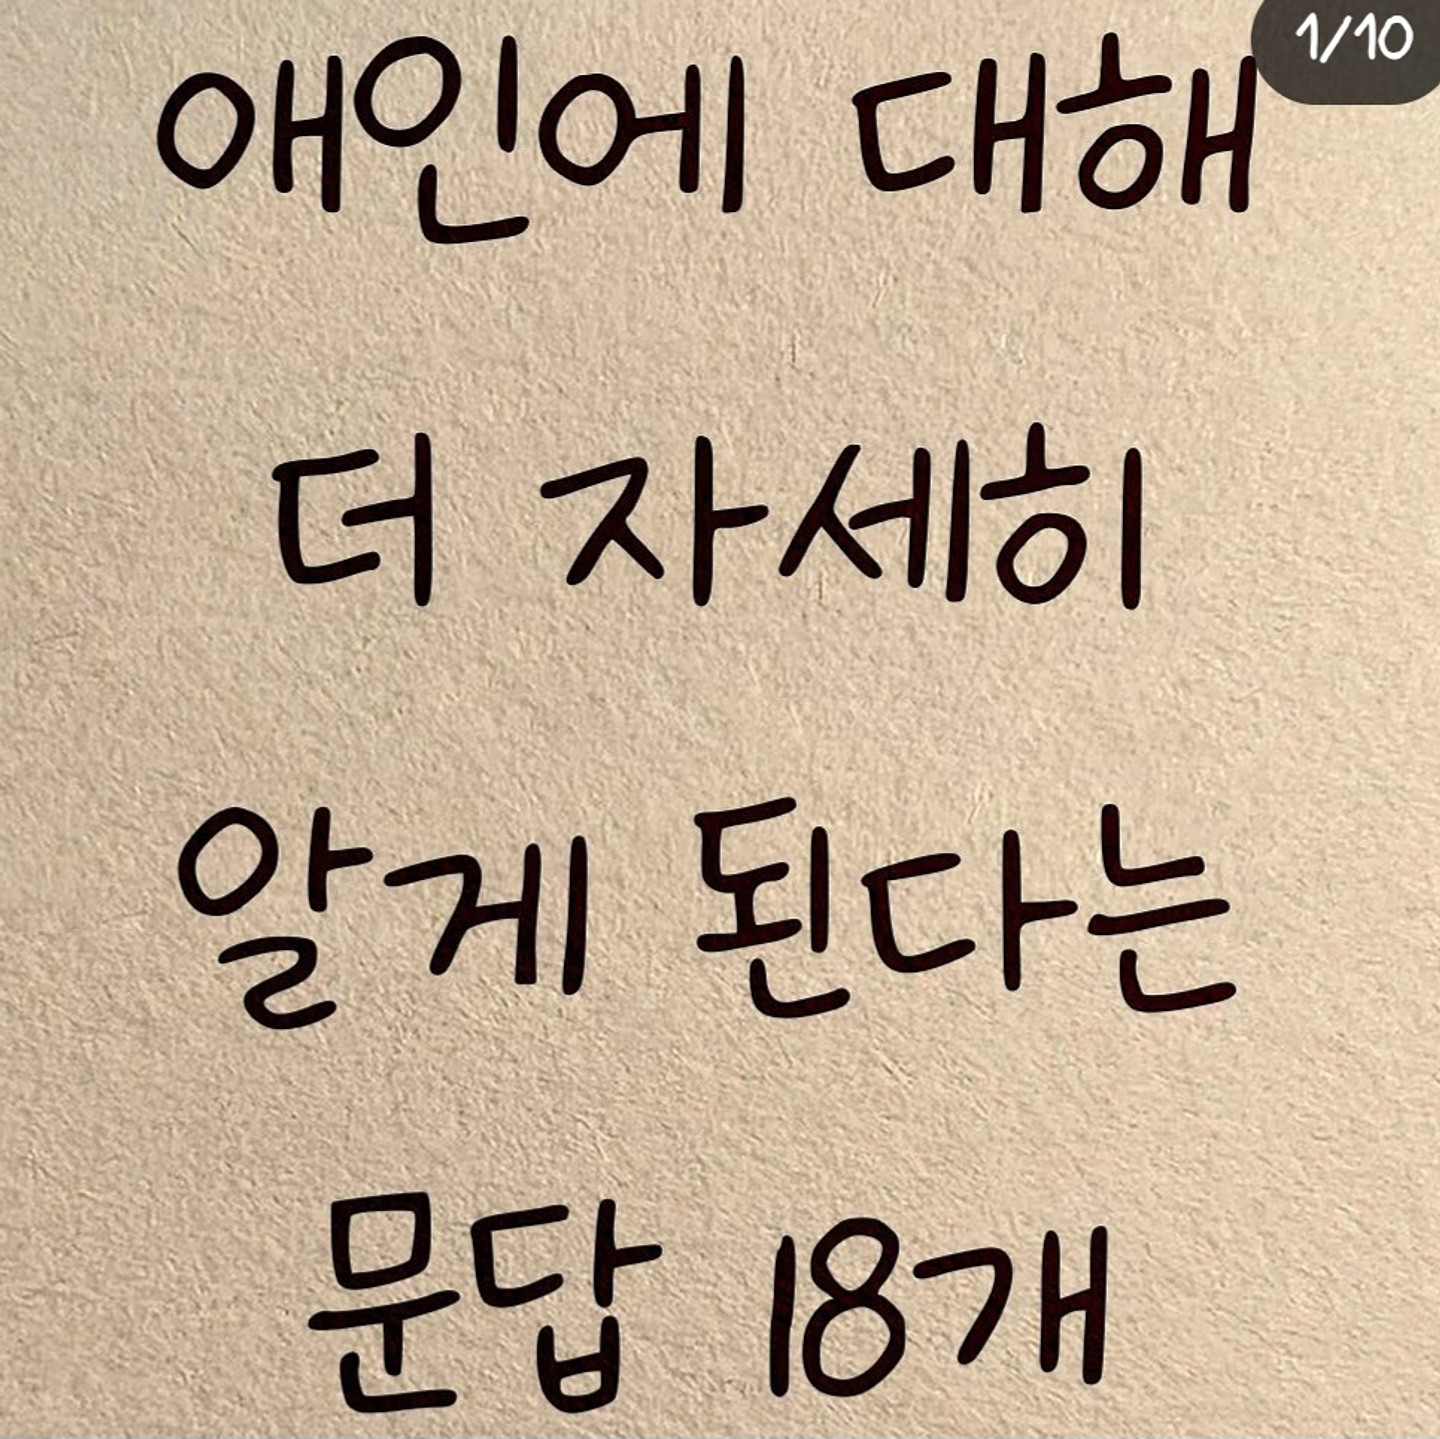 1/10
애인에 대해
더 자세히
알게 된다는
문답 18개